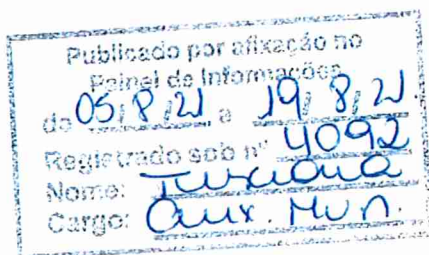 Publicado por afixação no
Painel de Informações
do 05, 8, 21 a 19, 8, 21
Registrado sob nº 4092
Nome:
Cargo: Aux. Mun.